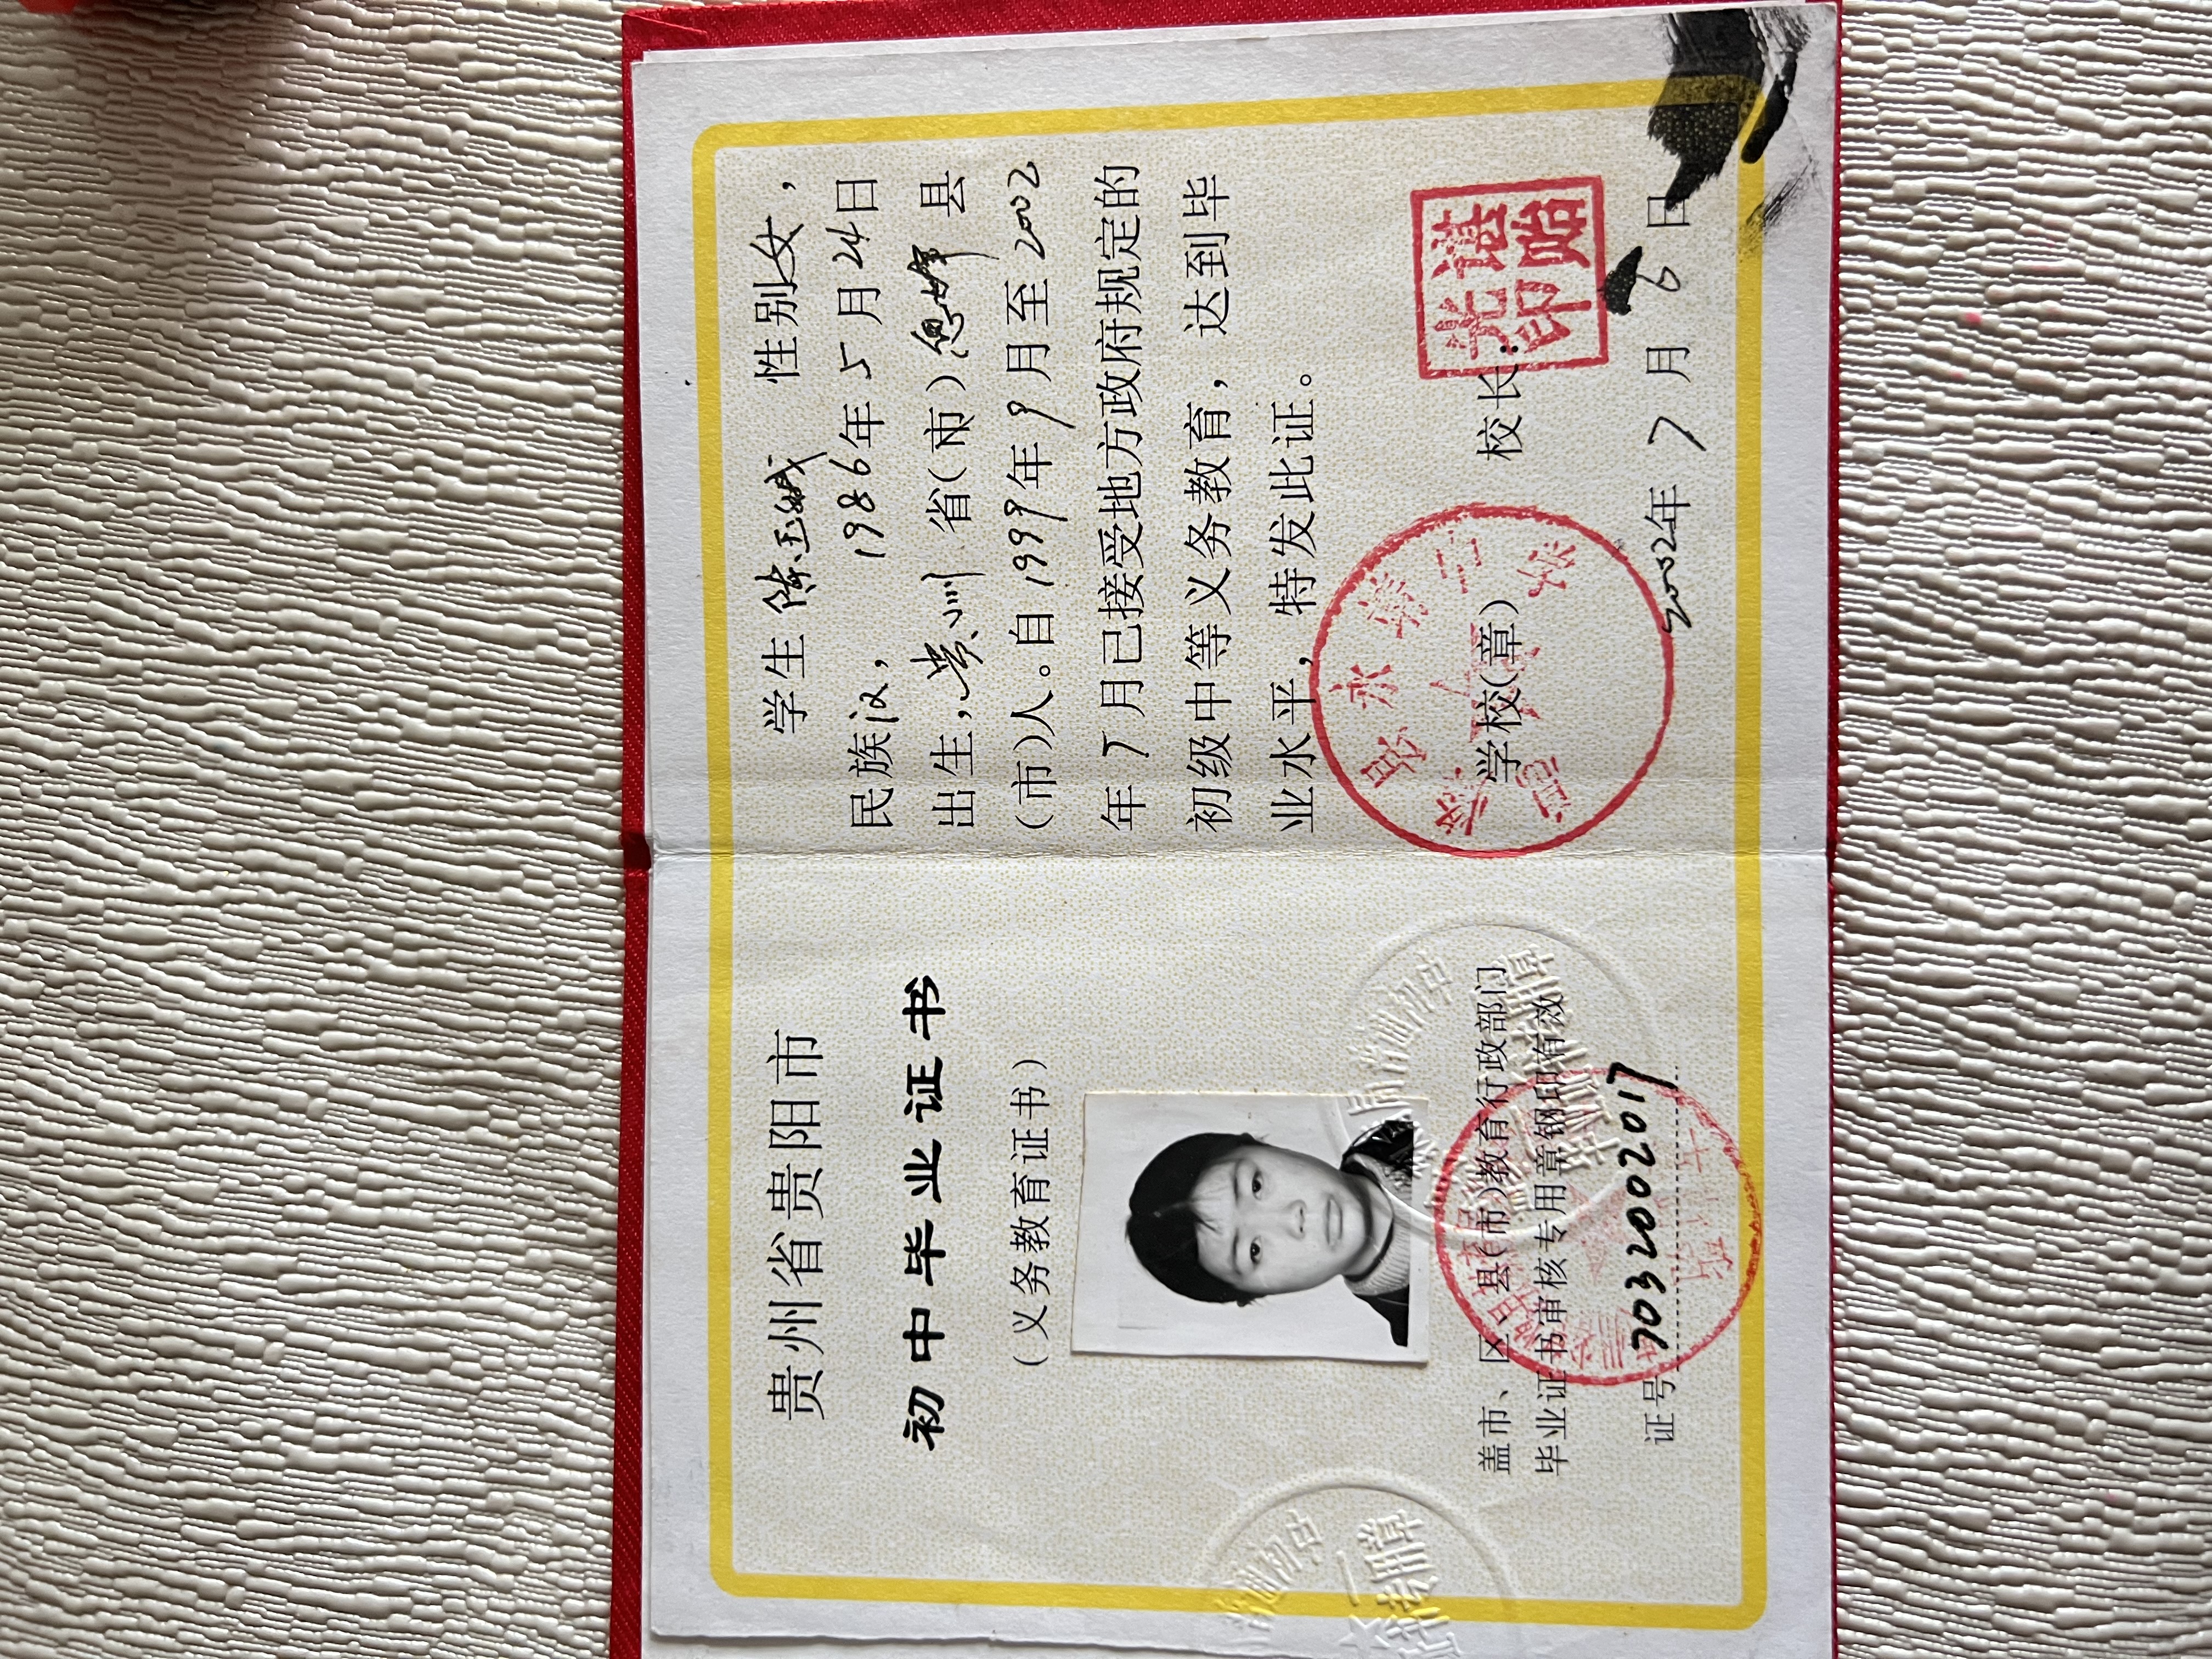 贵州省贵阳市
初中毕业证书
(义务教育证书)
盖市、区、县(市)教育行政部门
毕业证书审核专用章钢印有效
证号 703200202017
学生 陈 性别女,
民族汉, 1986年5月24日
出生,贵州 省(市)息烽 县
(市)人。自1999年9月至2002
年7月已接受地方政府规定的
初级中等义务教育,达到毕
业水平,特发此证。
学校(章) 校长:
2002年7月6日